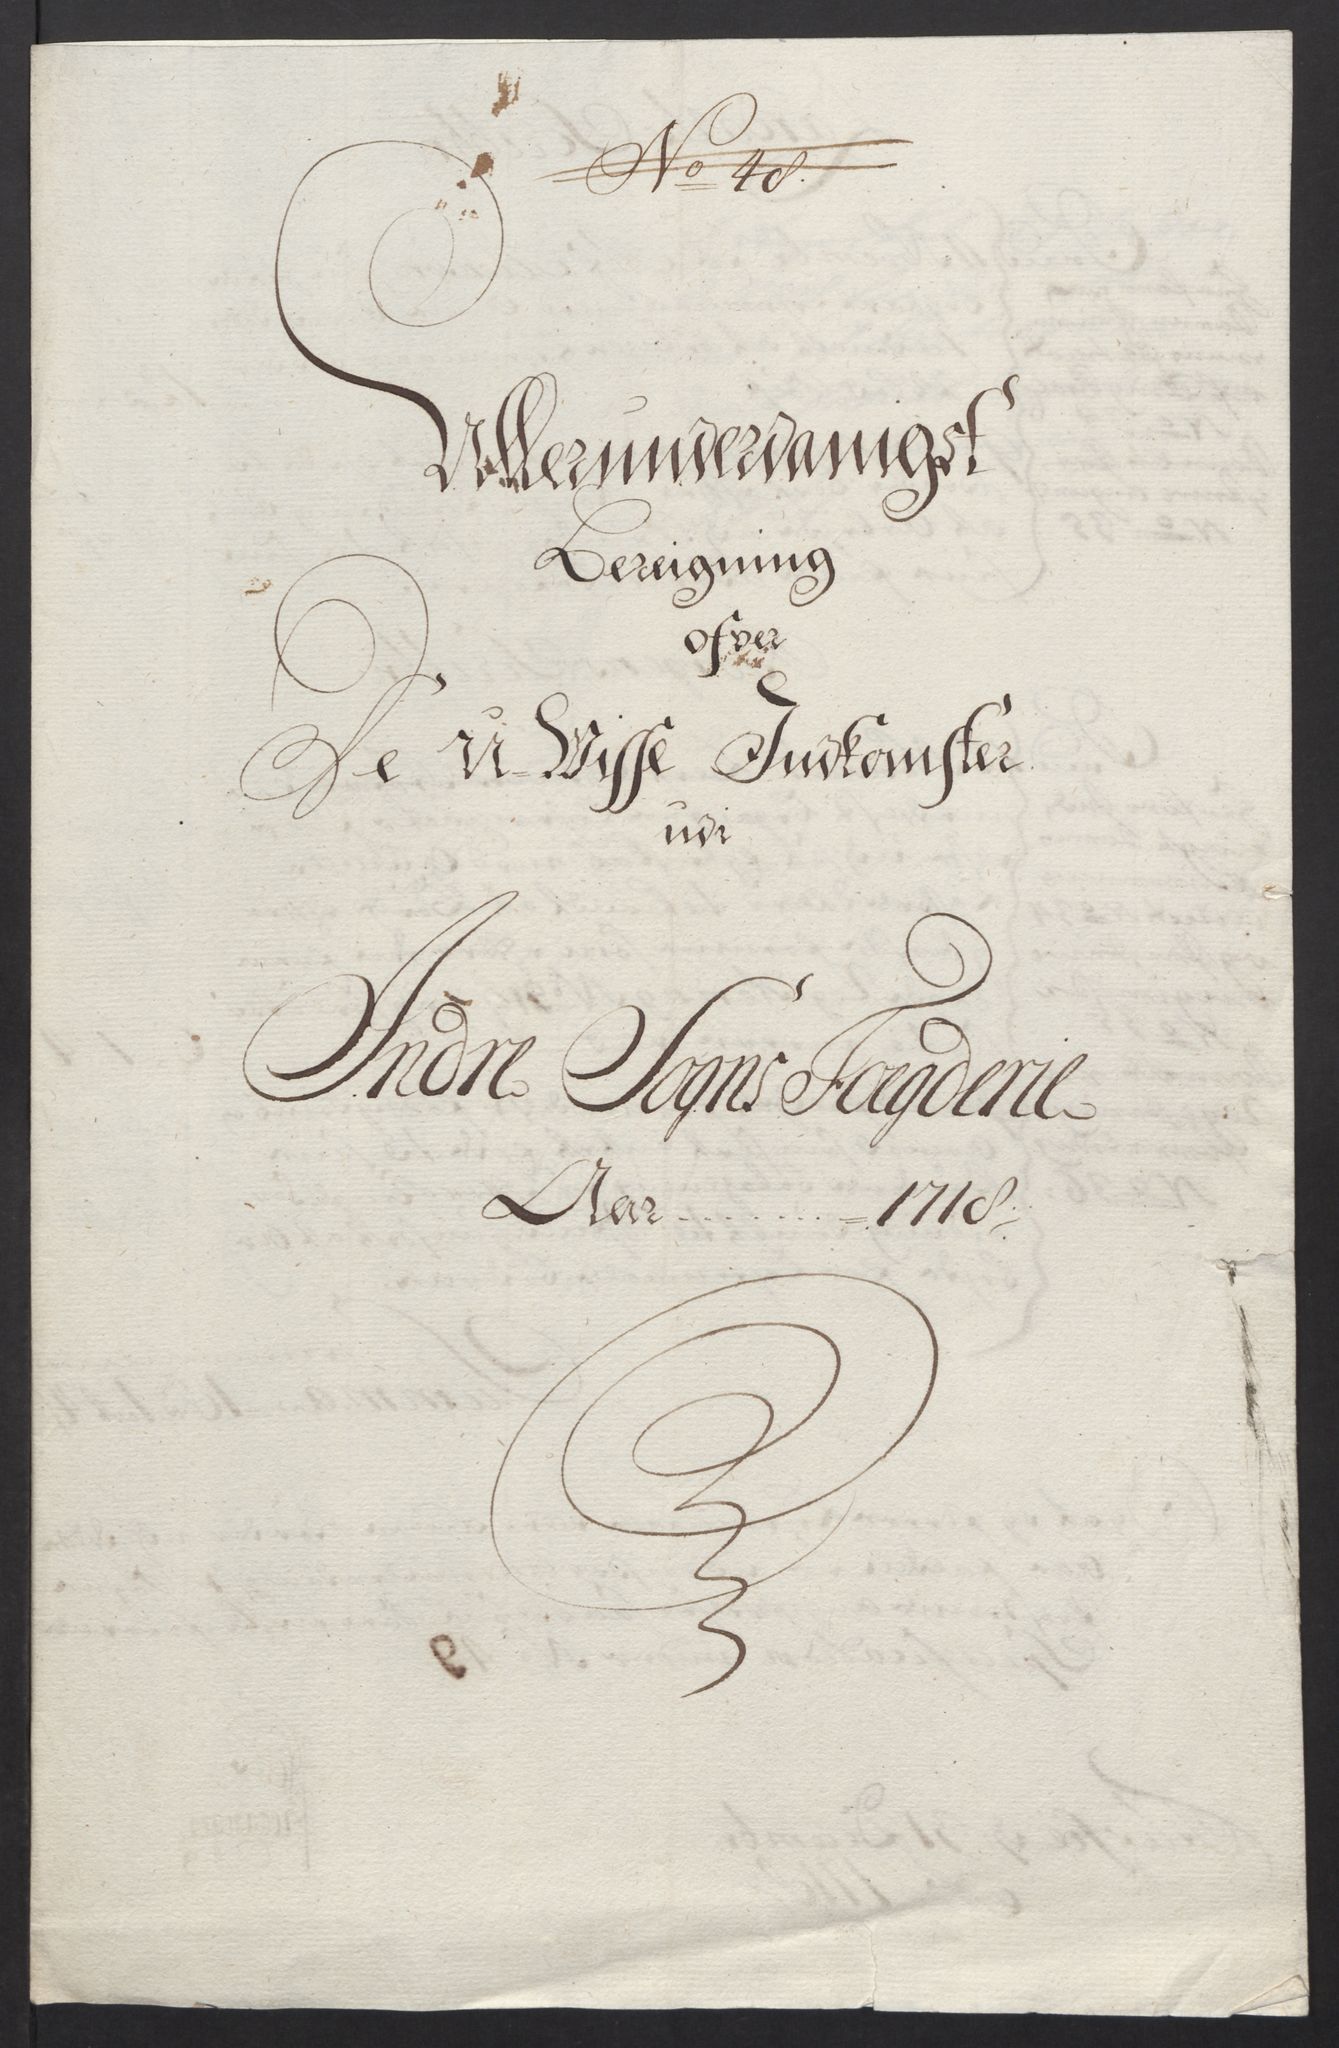 No 48.
Allerunderdanigst
Bereigning
ofver
De U-Wisse Indkomster
udi
Indre Sogns Fægderie
Aar ........ = 1718.
9